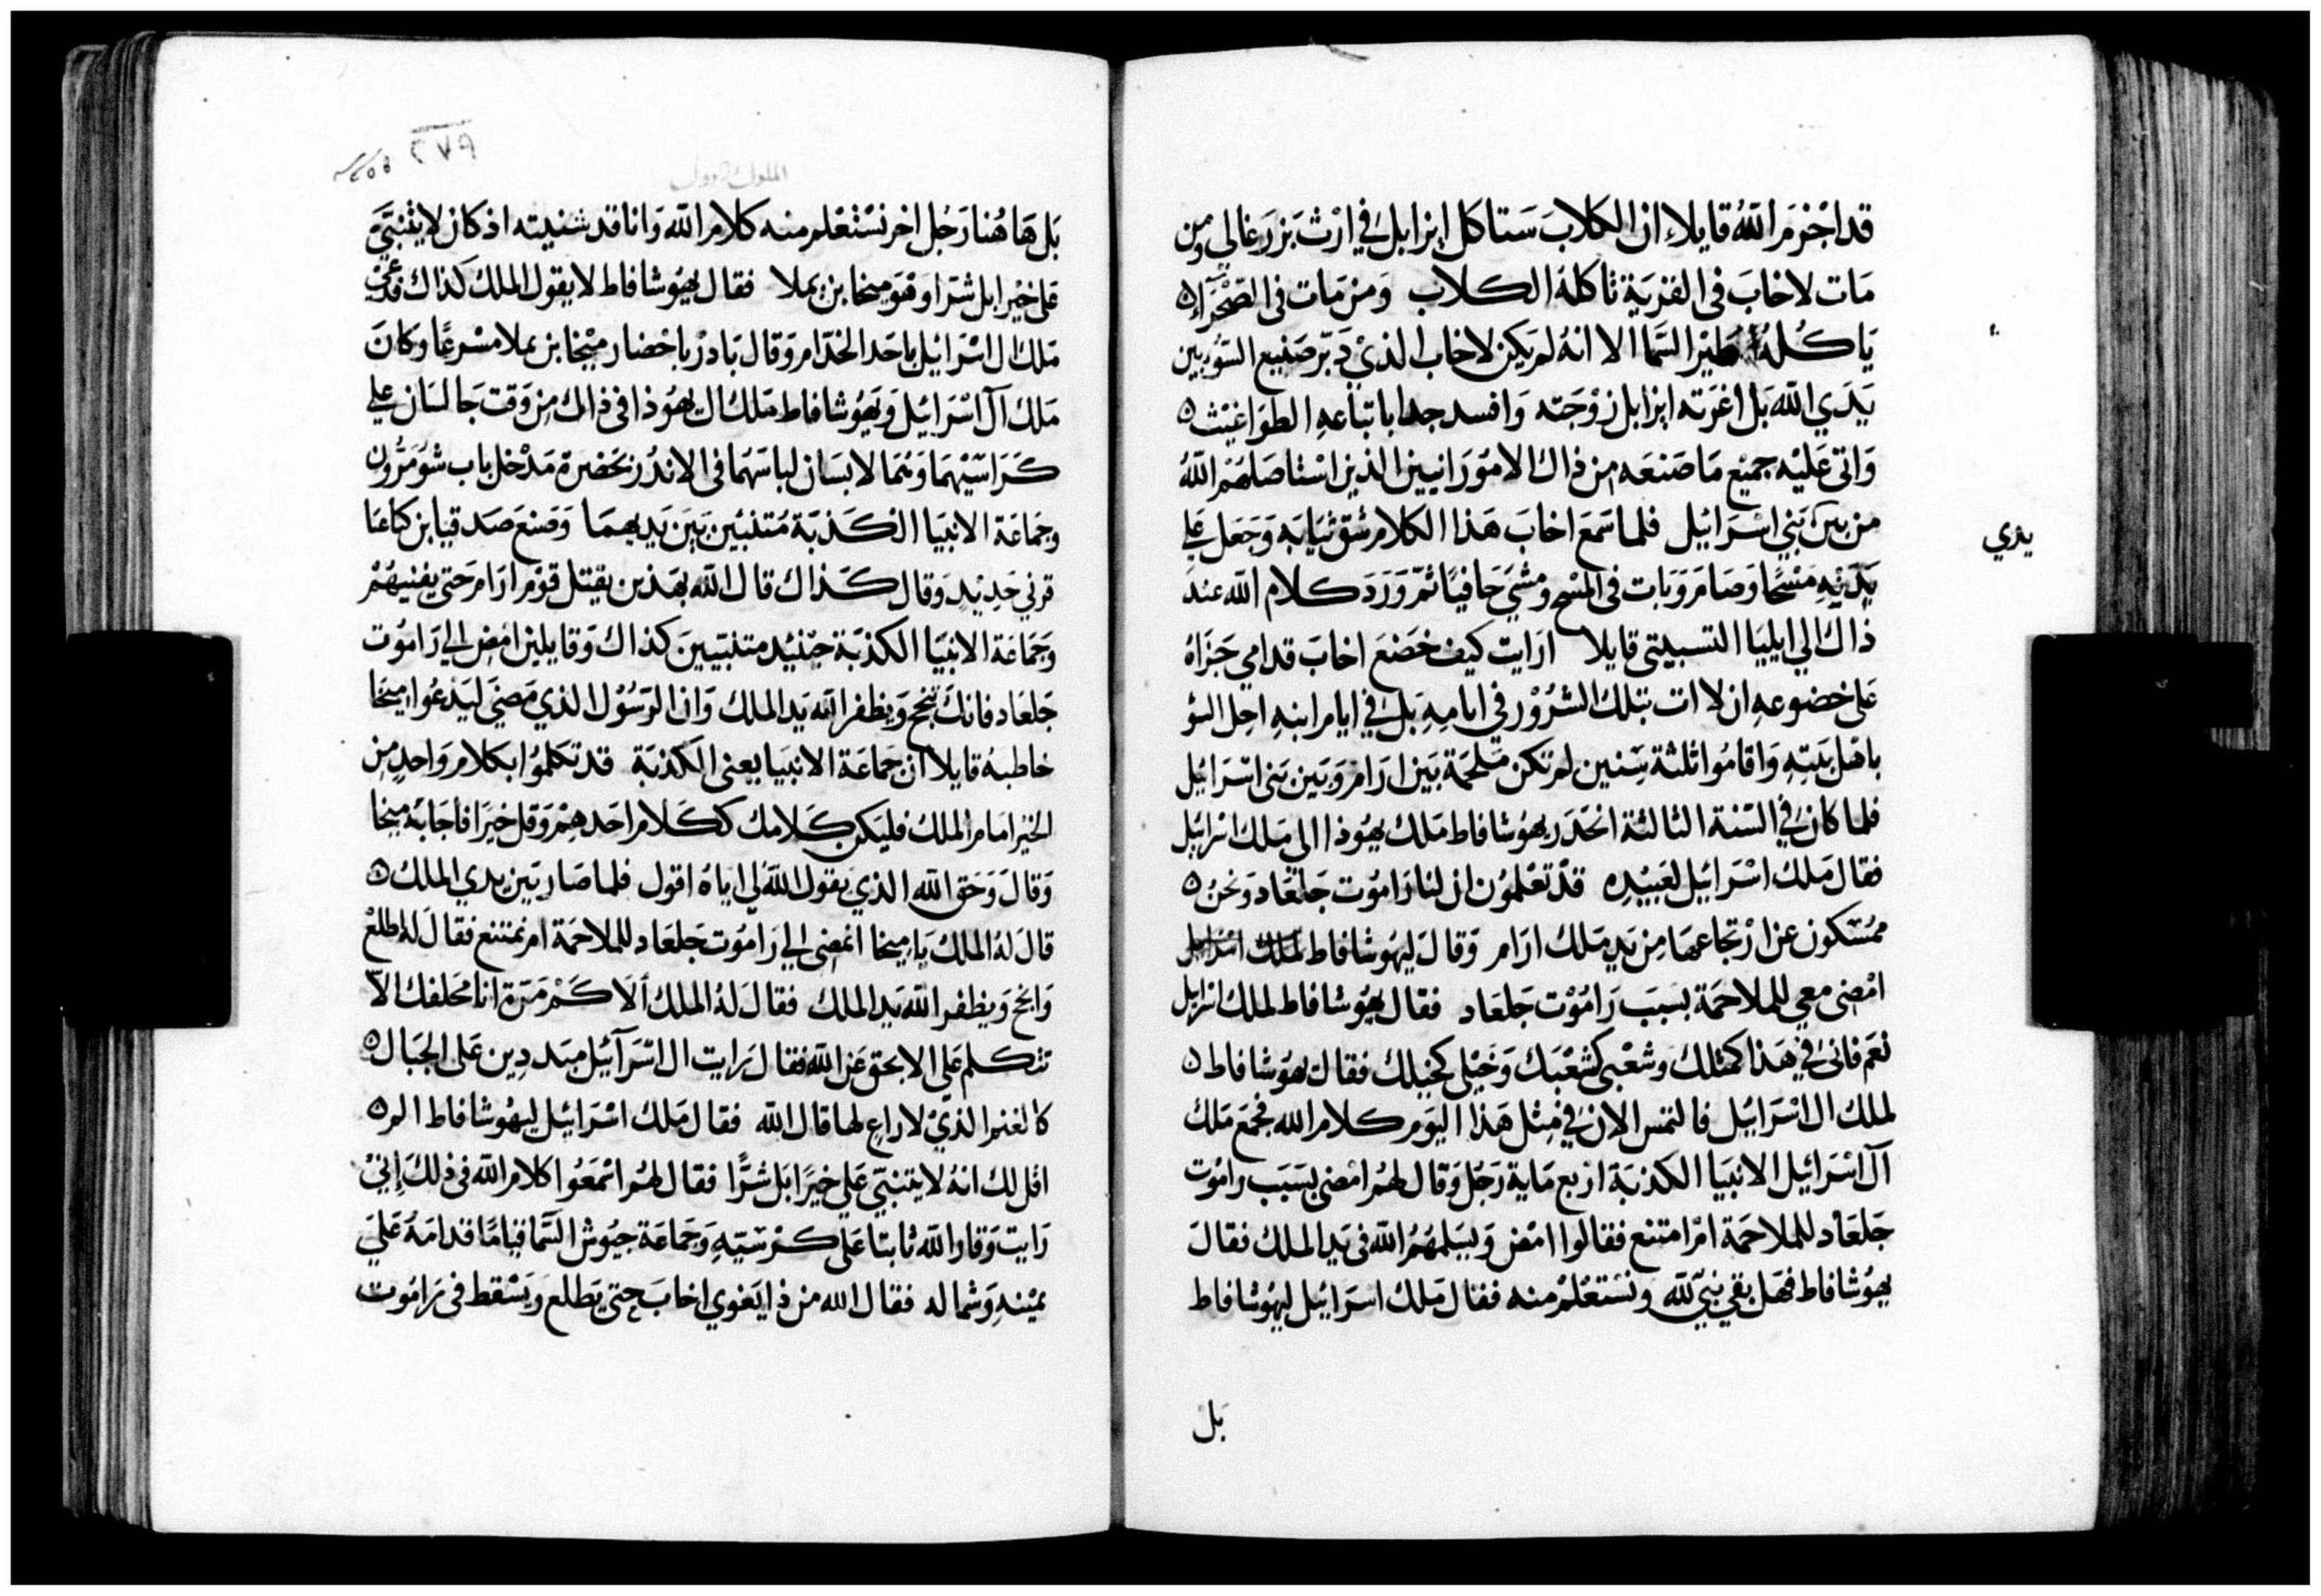 قد اجْزمَ اللّهُ قايلاً ان الكلابَ سَتاكل ايزابل في ارْث يَزرَغالي ومن
مَات لاخابَ في القريَة تاكلهُ الكلاب وَمن مَات في الصَّحْرَاء
يَاكُلهُ طيْر السَّما الا انهُ لم يَكن لاخاب الذيْ دَبّر صَنيع السَّوء بين
يَدَي اللّه بَل اغرَته ايزابل زوْجَته وَافسد جدا باتباعهِ الطوَاغيْث
وَاتى عَليْه جميْع مَا صَنعَه من ذاك الامُوَرَانيين الذين اسْتاصَلهُمُ اللّهُ
من بين بَني اسْرَائيل فلما سَمعَ اخابَ هَذا الكلام شَق ثيَابَه وَجَعل عَلى
يَدَيْهِ مَسْحًا وَصَامَ وَبَات في المسْح ومشيَ حَافيًا ثمّ وَرَدَ كلام اللّه عنْدَ
يدي
ذاك الي ايليَا التسبيتي قايلا ارَايت كيف خضَعَ اخابَ قدامي جَزَاهُ
عَلى خضوعهِ ان لا ات بتلك الشرُوْر في ايامهِ بَل في ايام ابنهِ احِل السّو
باهْل بَيتهِ وَاقامُوا ثلثة سِنين لم تكن مَلحَمَة بَين ارَام وَبَين بَني اسْرَائيل
فلما كان في السّنة الثالثة انحَدَر يهوُشافاط مَلك يهوُذا الى مَلك اسرائيل
فقال مَلك اسْرَائيل لعَبيْده قدْ تعْلموُن ان لنا رَامُوت جَلعَاد وَنحنُ
ممُسَكون عن ارْتجَاعهَا مِن يَد مَلك ارَام وَقالَ ليهُوشافاط
امْضى معي للملاحَمة بسَبَب رَامُوْت جَلعَاد فقال يهُوشافاط لملك اسرائيل
نعَم فانى في هَذا كمثلك وشعْبي كشعْبَك وَخيْلي كخيلك فقال يهوُشافاط
لملك ال اسْرَائيل فالتمس الان في مِثل هَذا اليَوم كلام اللّه فجمَع مَلك
آل اسْرَائيل الانبيَا الكذبَة اربع مَاية رَجُل وَقال لهمُ امْضى بسَبَب رامُوت
جَلعَاد للملاحَمة امْ امتنع فقالوا امْض وَيسَلمهُمُ اللّه في يَد الملك فقالَ
يهوُشافاط فهَل بقي نبيّ للّه ونسْتعْلمْ منه فقال مَلك اسرَائيل ليهُوشافاط
بَلْ
٢٧٨
الملوك الاول
بَل هَاهُنا رَجُل اخر نسْتعْلم منه كلام اللّه وَانا قد شنيته اذ كان لا يتنبَّيَ
عَلى خيْر ابل شرا وَهوَ ميخا بن يملا فقال يهُوشافاط لا يقول الملك كذاك فدعى
مَلك ال اسْرَائيل باحَد الخدّام وَقال بَادرْ باحْضار ميْخا بن يملا مسْرعًا وَكانَ
مَلك آل اسْرَائيل وَيهوُشافاط مَلك ال يهوُذا في ذاك مِن وَقت جَالسَان علي
كرَاسّيهما وَهُمَا لابسَان لباسَهُما في الاندُر بحَضرة مَدْخل باب شوُمَرُون
وجَماعَة الانبيَا الكذبَة مُتنبّين بَين يَديهما وَصَنعَ صَدقيا بن كناعَنا
قرني حَدِيْد وَقال كذاك قال اللّه بهَذين يقتل قوْم ارَام حَتى يفنيهُمْ
وَجَمَاعَة الانبيَا الكذبَة حيْنئِد متنبّيينَ كذاك وَقايلين امْض الي رَامُوت
جَلعَاد فانك تنجح وَيظفر اللّه يَد الملك وَان الرَسُوْل الذي مَضيَ ليَدْعُوا ميخا
خاطبهُ قايلا ان جَماعَة الانبيَا يعني الكذبَة قد تكلموُا بكلام وَاحدٍ من
الخيْر امَام الملك فليَكن كلامك ككلام احَدهِمْ وَقل خيرًا فاجَابَه ميخا
وَقالَ وَحَق اللّه الذي يَقول اللّه لي اياهُ اقول فلما صَار بَين يدي الملك
قالَ لهُ الملك يَا ميخا انمضى الي رَامُوت جَلعَاد للملاحَمة ام نمتنع فقالَ لهُ اطلعْ
وَانجح وَيظفر اللّه يَد الملك فقالَ لهُ الملك ألا كمْ مَرّة انا محلفك الاّ
تتكلم عَلي الا بحَق عَن اللّه فقال رَايت ال اسْرَآئيل مبَددِين عَلى الجبَال
كالغنم الذيْ لا راعٍ لها قال اللّه فقال مَلك اسْرَائيل ليهُوشافاط الم
اقل لك انهُ لا يتنبَّي عَلي خيرًا بَل شرًّا فقال لهمُ اسْمَعُوا كلام اللّه في ذلك إنيْ
رَايت وَقار اللّه ثابتا عَلي كرْسّيهِ وَجمَاعَة جيُوش السَّما قيامًا قدامَهُ عَليَ
يمْينهِ وَشماله فقال اللّه من ذا يَغوي اخابَ حتى يَطلع وَيَسْقط في رَامُوت